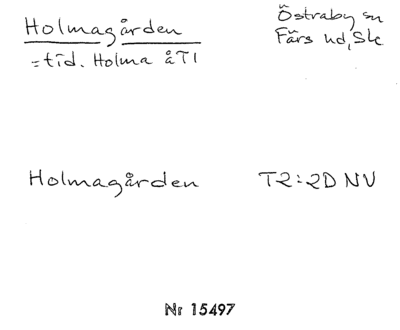 Holmagården
Östraby sn
Färs hd, Sk
= tid. Holma å T1
Holmagården T2:2D NV
Nr 15497